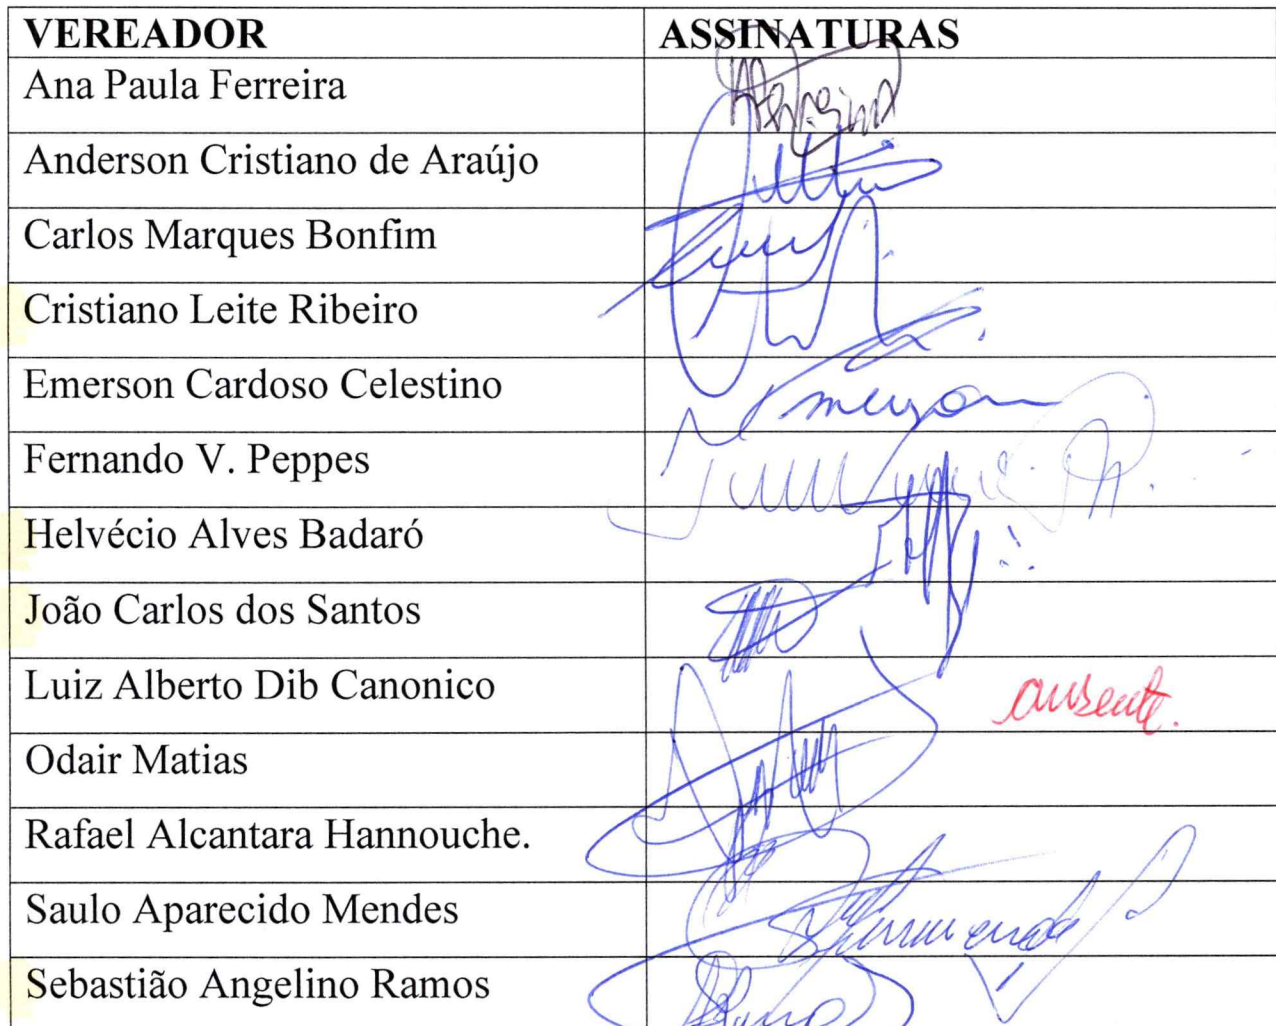 VEREADOR ASSINATURAS
Ana Paula Ferreira
Anderson Cristiano de Araújo
Carlos Marques Bonfim
Cristiano Leite Ribeiro
Emerson Cardoso Celestino Emerson
Fernando V. Peppes
Helvécio Alves Badaró
João Carlos dos Santos
Luiz Alberto Dib Canonico ausente.
Odair Matias
Rafael Alcantara Hannouche.
Saulo Aparecido Mendes
Sebastião Angelino Ramos